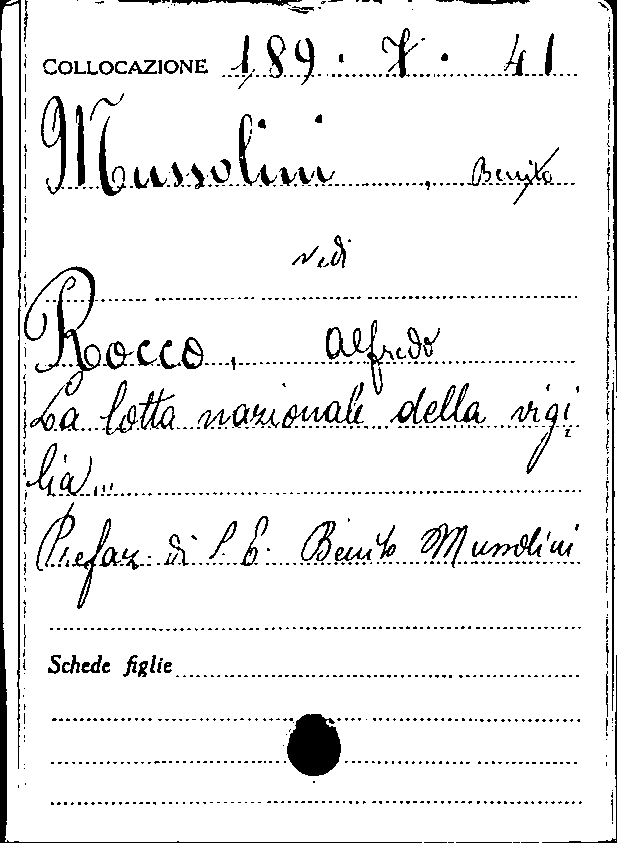 COLLOCAZIONE 189. 7. 41
Mussolini, Benito
vedi
Rocco, Alfredo
La lotta nazionale della vigi
lia...
Prefaz. di S. E. Benito Mussolini
Schede figlie